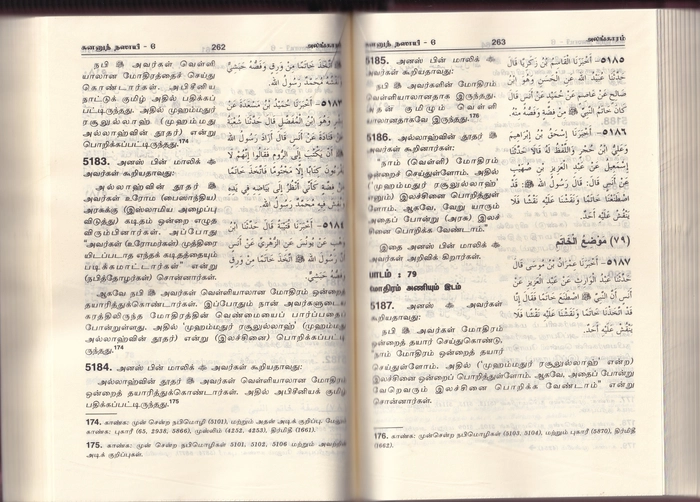 சுனனுந் நஸாயீ - 6
262
அலங்காரம்
நபி ﷺ அவர்கள் வெள்ளி
யாலான மோதிரத்தைச் செய்து
கொண்டார்கள். அபிசீனிய
நாட்டுக் குமிழ் அதில் பதிக்கப்
பட்டிருந்தது. அதில் முஹம்மதுர்
ரசூலுல்லாஹ் (முஹம்மது
அல்லாஹ்வின் தூதர்) என்று
பொறிக்கப்பட்டிருந்தது.174
5183. அனஸ் பின் மாலிக்
அவர்கள் கூறியதாவது:
அல்லாஹ்வின் தூதர் ﷺ
அவர்கள் உரோம (பைஸாந்திய)
அரசுக்கு (இஸ்லாமிய அழைப்பு
விடுத்து) கடிதம் ஒன்றை எழுத
விரும்பினார்கள். அப்போது
"அவர்கள் (உரோமர்கள்) முத்திரை
யிடப்படாத எந்தக் கடிதத்தையும்
படிக்கமாட்டார்கள்" என்று
(நபித்தோழர்கள்) சொன்னார்கள்.
ஆகவே நபி ﷺ அவர்கள் வெள்ளியாலான மோதிரம் ஒன்றைத்
தயாரித்துக்கொண்டார்கள். இப்போதும் நான் அவர்களுடைய
கரத்திலிருந்த மோதிரத்தின் வெண்மையைப் பார்ப்பதைப்
போன்றுள்ளது. அதில் 'முஹம்மதுர் ரசூலுல்லாஹ்' (முஹம்மது
அல்லாஹ்வின் தூதர்) என்று (இலச்சினை) பொறிக்கப்பட்டி
ருந்தது.174
5184. அனஸ் பின் மாலிக் அவர்கள் கூறியதாவது:
அல்லாஹ்வின் தூதர் ﷺ அவர்கள் வெள்ளியாலான மோதிரம்
ஒன்றைத் தயாரித்துக்கொண்டார்கள். அதில் அபிசீனியக் குமிழ்
பதிக்கப்பட்டிருந்தது.175
174. காண்க: முன் சென்ற நபிமொழி (5101), மற்றும் அதன் அடிக் குறிப்பு; மேலும்
காண்க: புகாரீ (65, 2938, 5866), முஸ்லிம் (4252, 4253), திர்மிதீ (1661).
175. காண்க: முன் சென்ற நபிமொழிகள் 5101, 5102, 5106 மற்றும் அவற்றின்
அடிக் குறிப்புகள்.
اتَّخَذَ خَاتَمًا مِنْ وَرِقٍ وَفَصُّهُ حَبَشِيٌّ
وَنَقْشُهُ مُحَمَّدٌ رَسُولُ اللهِ.
٥١٨٣- أَخْبَرَنَا حُمَيْدُ بْنُ مَسْعَدَةَ عَنْ
بِشْرٍ وَهُوَ ابْنُ الْمُفَضَّلِ قَالَ حَدَّثَنَا شُعْبَةُ
عَنْ قَتَادَةَ عَنْ أَنَسٍ قَالَ أَرَادَ رَسُولُ اللهِ
ﷺ أَنْ يَكْتُبَ إِلَى الرُّومِ فَقَالُوا إِنَّهُمْ لَا
يَقْرَءُونَ كِتَابًا إِلَّا مَخْتُومًا فَاتَّخَذَ خَاتَمًا
مِنْ فِضَّةٍ كَأَنِّي أَنْظُرُ إِلَى بَيَاضِهِ فِي يَدِهِ
وَنُقِشَ فِيهِ مُحَمَّدٌ رَسُولُ اللهِ.
٥١٨٤- أَخْبَرَنَا قُتَيْبَةُ قَالَ حَدَّثَنَا ابْنُ
وَهْبٍ عَنْ يُونُسَ عَنِ الزُّهْرِيِّ عَنْ أَنَسٍ
ﷺ خَاتَمًا مِنْ وَرِقٍ
حَبَشِيٌّ
சுனனுந் நஸாயீ - 6
263
அலங்காரம்
5185. அனஸ் பின் மாலிக்
அவர்கள் கூறியதாவது:
நபி ﷺ அவர்களின் மோதிரம்
வெள்ளியாலானதாக இருந்தது.
அதன் குமிழும் வெள்ளி
யாலானதாகவே இருந்தது.176
5186. அல்லாஹ்வின் தூதர் ﷺ
அவர்கள் கூறினார்கள்:
"நாம் (வெள்ளி) மோதிரம்
ஒன்றைச் செய்துள்ளோம். அதில்
('முஹம்மதுர் ரசூலுல்லாஹ்'
எனும்) இலச்சினை பொறித்துள்
ளோம். ஆகவே, வேறு யாரும்
அதைப் போன்று (அரசு) இலச்
சினை பொறிக்க வேண்டாம்."
இதை அனஸ் பின் மாலிக்
அவர்கள் அறிவிக் கிறார்கள்.
பாடம் : 79
மோதிரம் அணியும் இடம்
5187. அனஸ் அவர்கள்
கூறியதாவது:
நபி ﷺ அவர்கள் மோதிரம்
ஒன்றைத் தயார் செய்துகொண்டு,
"நாம் மோதிரம் ஒன்றைத் தயார்
செய்துள்ளோம். அதில் ('முஹம்மதுர் ரசூலுல்லாஹ்' என்ற)
இலச்சினை ஒன்றைப் பொறித்துள்ளோம். ஆகவே, அதைப் போன்று
வேறெவரும் இலச்சினை பொறிக்க வேண்டாம்" என்று
சொன்னார்கள்.
176. காண்க: முன்சென்ற நபிமொழிகள் (5103, 5104), மற்றும் புகாரீ (5870), திர்மிதீ
(1662).
٥١٨٥- أَخْبَرَنَا الْقَاسِمُ بْنُ زَكَرِيَّا قَالَ
حَدَّثَنَا عُبَيْدُ اللهِ عَنِ الْحَسَنِ وَهُوَ ابْنُ
صَالِحٍ عَنْ عَاصِمٍ عَنْ حُمَيْدٍ عَنْ أَنَسٍ قَالَ
كَانَ خَاتَمُ النَّبِيِّ ﷺ مِنْ فِضَّةٍ وَفَصُّهُ مِنْهُ.
٥١٨٦- أَخْبَرَنَا إِسْحَقُ بْنُ إِبْرَاهِيمَ
وَعَلِيُّ بْنُ حُجْرٍ وَاللَّفْظُ لَهُ قَالَا حَدَّثَنَا
إِسْمَعِيلُ عَنْ عَبْدِ الْعَزِيزِ بْنِ صُهَيْبٍ
عَنْ أَنَسٍ قَالَ: قَالَ رَسُولُ اللهِ ﷺ: قَدِ
اصْطَنَعْنَا خَاتَمًا وَنَقَشْنَا عَلَيْهِ نَقْشًا فَلَا
يَنْقُشْ عَلَيْهِ أَحَدٌ.
(٧٩) مَوْضِعُ الْخَاتَمِ
٥١٨٧- أَخْبَرَنَا عِمْرَانُ بْنُ مُوسَى قَالَ
حَدَّثَنَا عَبْدُ الْوَارِثِ عَنْ عَبْدِ الْعَزِيزِ عَنْ
أَنَسٍ أَنَّ النَّبِيَّ ﷺ اصْطَنَعَ خَاتَمًا فَقَالَ إِنَّا
قَدِ اتَّخَذْنَا خَاتَمًا وَنَقَشْنَا عَلَيْهِ نَقْشًا فَلَا
يَنْقُشْ عَلَيْهِ أَحَدٌ.